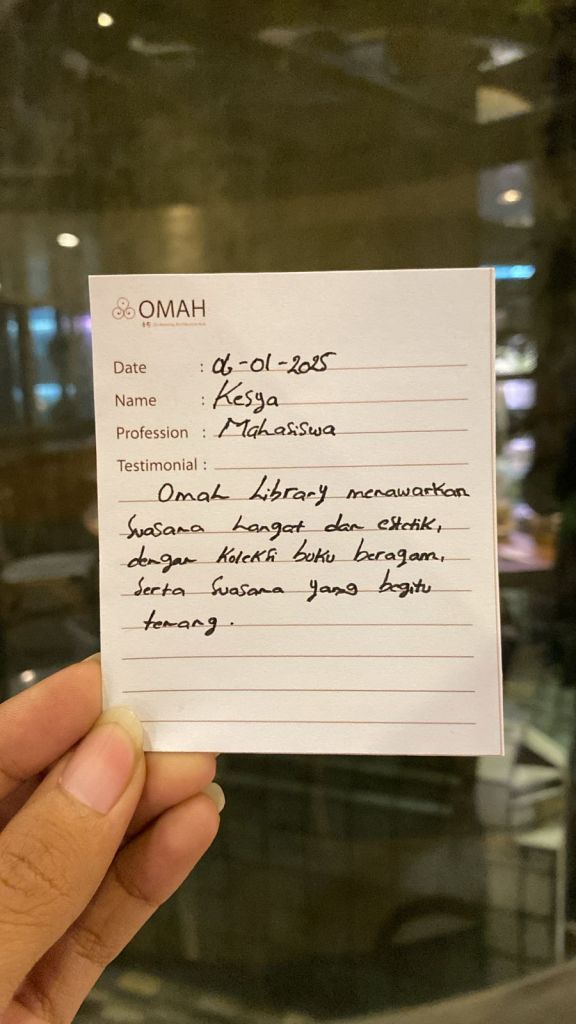 OMAH
Date : 06-01-2025
Name : Kesya
Profession : Mahasiswa
Testimonial :
Omah Library menawarkan
suasana hangat dan estetik,
dengan koleksi buku beragam,
serta suasana yang begitu
tenang.